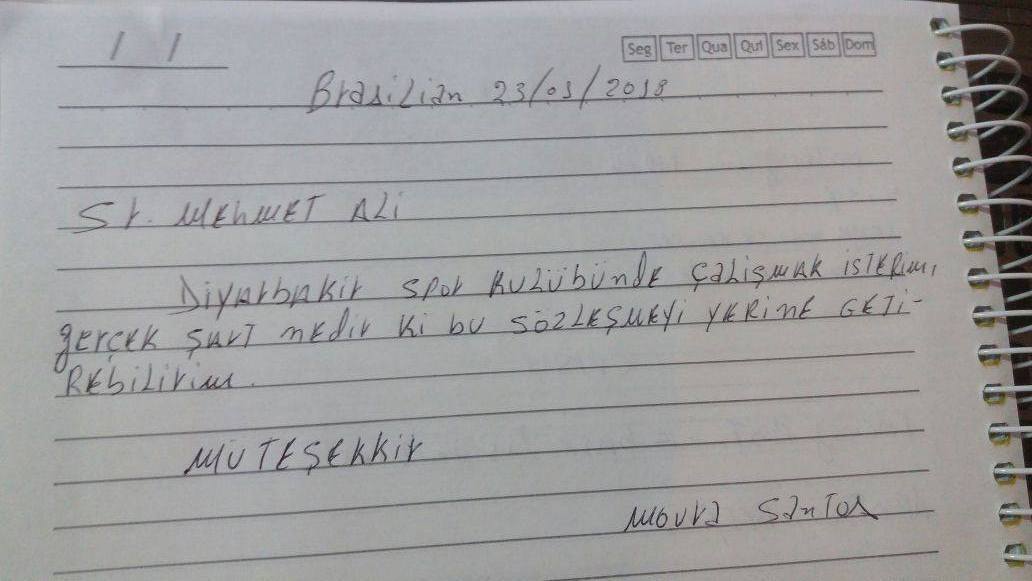 / /
Seg Ter Qua Qui Sex Sáb Dom
Brasilian 23/03/2018
Sr. MEhMET ALi
DiyArbAkir spor KULÜbÜNdE ÇALiŞMAK iSTERiM,
gERÇEK ŞArT nEdir Ki bu SÖZLEŞMEYi YERiNE GETi-
REbiLiriM.
MÜTEŞEKKir
Moura Santos